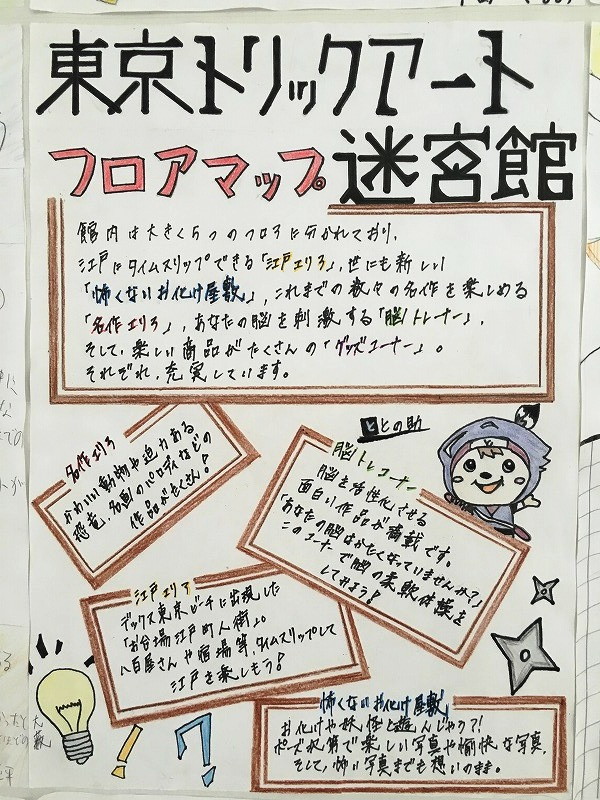 東京トリックアート
フロアマップ 迷宮館
館内は大きく5つのフロアに分かれており、
江戸にタイムスリップできる「江戸エリア」、世にも新しい
「怖くないお化け屋敷」、これまでの数々の名作を楽しめる
「名作エリア」、あなたの脳を刺激する「脳トレーナー」、
そして、楽しい商品がたくさんの「グッズコーナー」。
それぞれ、充実しています。
名作エリア
かわいい動物や迫力ある
恐竜、名画のパロディなどの
作品がたくさん!
ととの助
脳トレコーナー
脳を活性化させる
面白い作品が満載です。
「あなたの脳はかたくなっていませんか?」
このコーナーで脳の柔軟体操を
してみよう!
江戸エリア
デックス東京ビーチに出現した
「お台場江戸町人街」。
八百屋さんや宿場等、タイムスリップして
江戸を楽しもう!
怖くないお化け屋敷
お化けや妖怪と遊んじゃう?!
ポーズ次第で楽しい写真や愉快な写真、
そして、怖い写真までも想いのまま。
!?